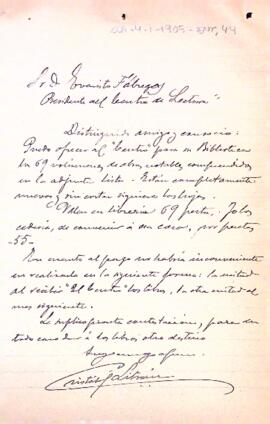 4-1-1905
Sr. D. Evaristo Fábregas
Presidente del "Centro de Lectura"
Distinguido amigo y consocio:
Puedo ofrecer al "Centro" para su Biblioteca
los 69 volúmenes de obras notables comprendidos
en la adjunta lista. Están completamente
nuevos y sin cortar siquiera las hojas.
Valen en librería 69 pesetas. Yo los
cedería, de convenir a esa casa, por pesetas
-55-
En cuanto al pago no habría inconveniente
en realizarlo en la siguiente forma: la mitad
al recibir "El Centro" los libros, la otra mitad al
mes siguiente.
Le suplico pronta contestación, para dar
todo caso dar á los libros otro destino
Cristóbal Litrán